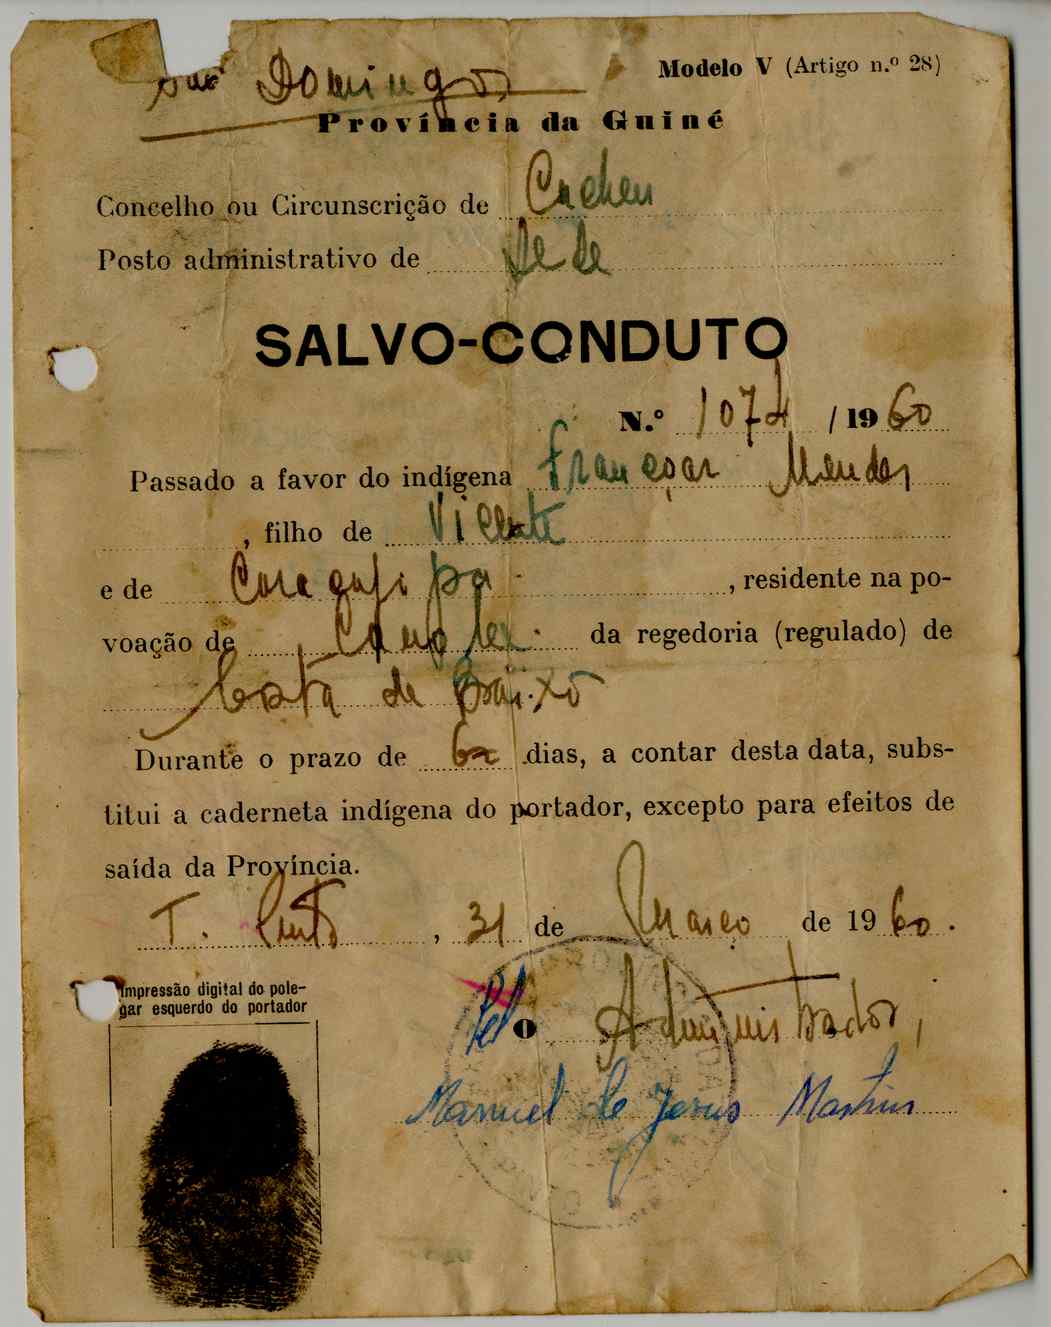 São Domingos
Modelo V (Artigo n.º 28)
Província da Guiné
Concelho ou Circunscrição de Cacheu
Posto administrativo de Sede
SALVO-CONDUTO
N.º 1074 / 1960
Passado a favor do indígena Mendes
, filho de Vicente
e de , residente na po-
voação de da regedoria (regulado) de
Costa de Baixo
Durante o prazo de 60 dias, a contar desta data, subs-
titui a caderneta indígena do portador, excepto para efeitos de
saída da Província.
T. Pinto, 31 de Março de 1960.
Impressão digital do pole-
gar esquerdo do portador
Pel O Administrador,
Manuel de Jesus Martins